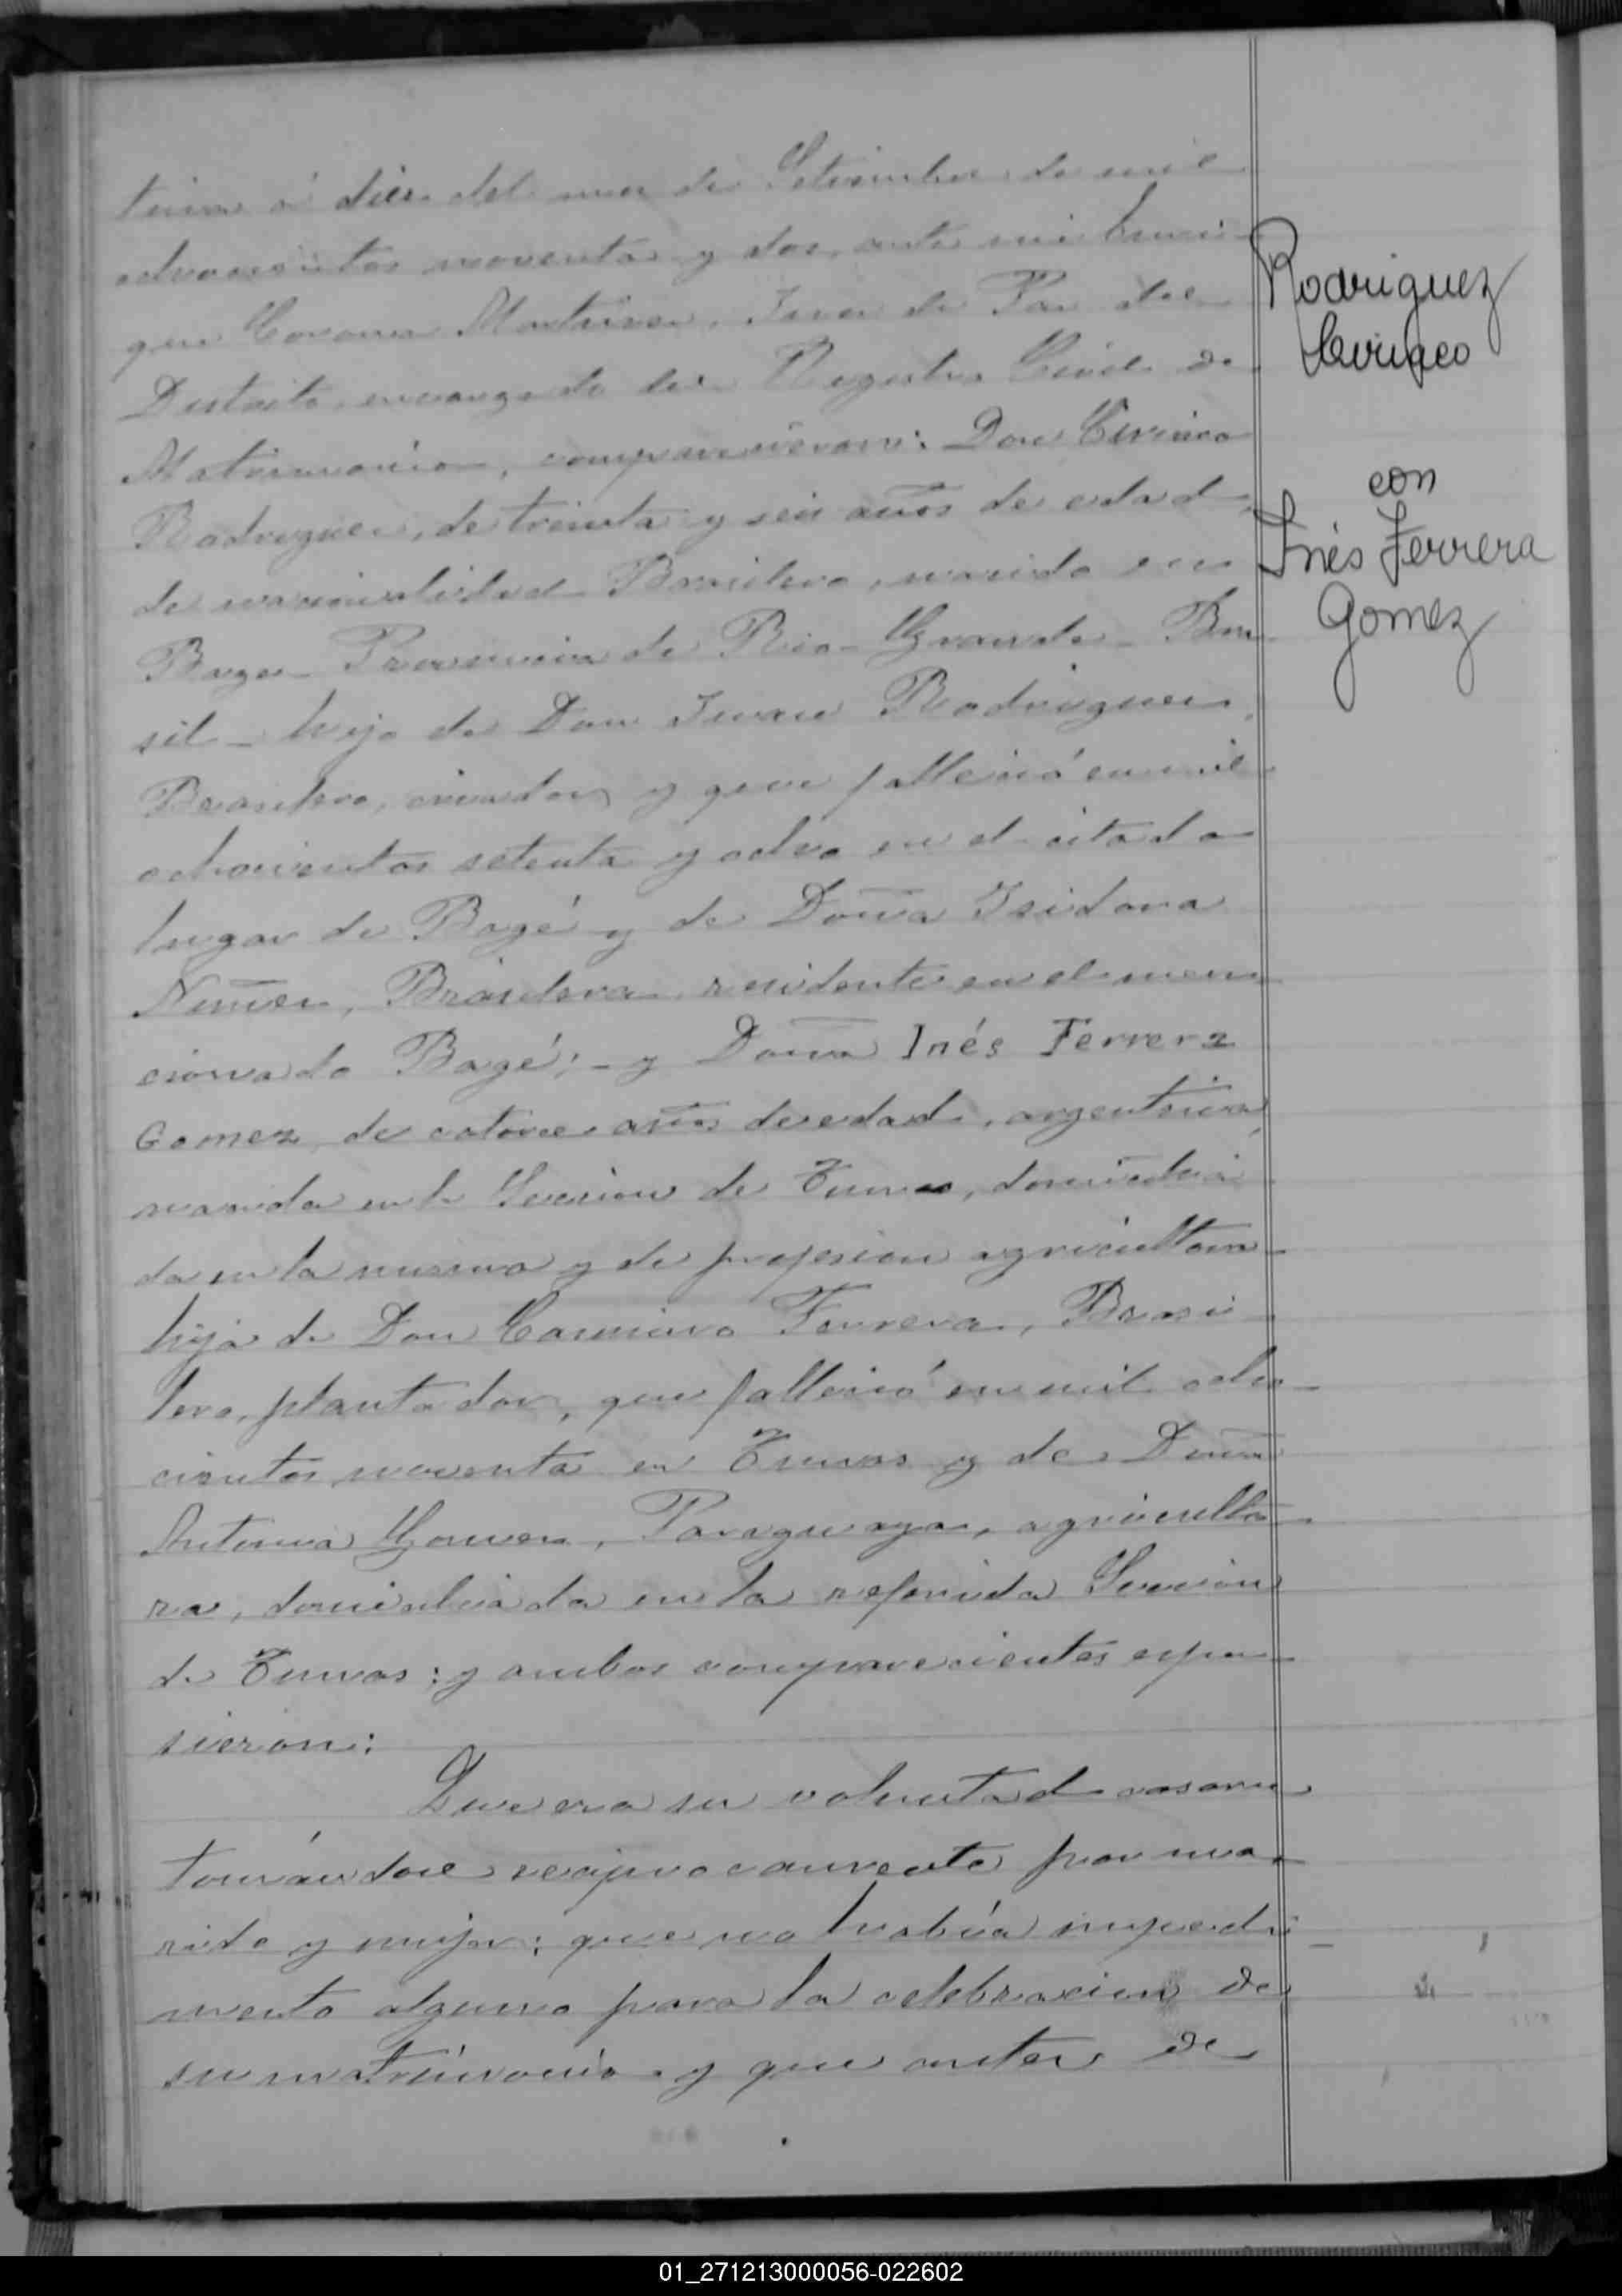 tina á diez del mes de Setiembre de mil
ochocientos noventa y dos, ante mi Enri
que Corona Martinez, Juez de Paz del
Distrito, encargado del Registro Civil de
Matrimonios, comparecieron: Don Ciriaco
Rodriguez, de treinta y seis años de edad,
de nacionalidad Brasilera, nacido en
Bage - Provincia de Rio-Grande - Bra
sil - hijo de Don Juan Rodriguez,
Brasilero, criador y que falleció en mil
ochocientos setenta y ocho en el citado
lugar de Bagé y de Doña Isidora
Nuñez, Brasilera residente en el men
cionado Bagé; - y Doña Inés Ferrera
Gomez de catorce años de edad, argentina,
nacida en la Seccion de Tunas, domicilia
da en la misma y de profesion agricultora
hija de Don Camiro Ferrera, Brasi
lero, plantador, que falleció en mil ocho
cientos noventa en Tunas y de Doña
Antonia Gomez, Paraguaya, agriculto
ra, domiciliada en la referida Seccion
de Tunas: y ambos comparecientes espu
sieron:
Que era su voluntad casarse
tomándose reciprocamente por ma
rido y mujer: que no habia impedi
mento alguno para la celebracion de
su matrimonio y que antes de
Rodriguez
Ciriaco
con
Inés Ferrera
Gomez
01_271213000056-022602